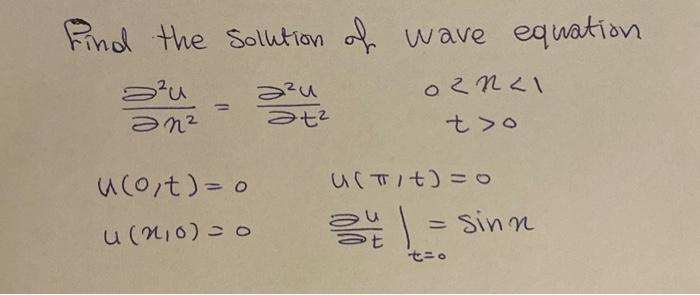 Find the Solution of wave equation
∂²u/∂x² = ∂²u/∂t² 0 < x < 1
t > 0
u(0,t) = 0 u(π,t) = 0
u(x,0) = 0 ∂u/∂t |t=0 = Sin x